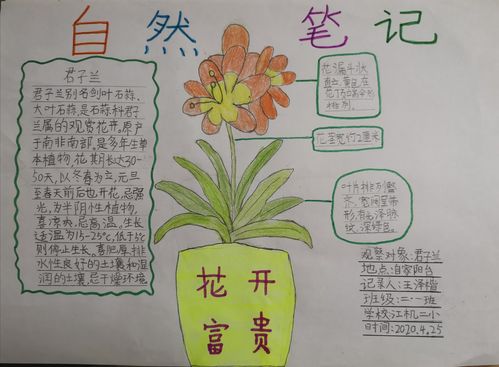 自然笔记
君子兰
君子兰别名剑叶石蒜、
大叶石蒜,是石蒜科君子
兰属的观赏花卉。原产
于南非南部,是多年生草
本植物,花期长达30-
50天,以冬春为主,元旦
至春节前后也开花,忌强
光,为半阴性植物,
喜凉爽,忌高温。生长
适温为15-25℃,低于5℃
则停止生长。喜肥厚、排
水性良好的土壤和湿
润的土壤,忌干燥环境
花漏斗状
直立,
花茎宽约2厘米
叶片排列整
齐,宽阔呈带
形,有光泽脉
纹,深绿色。
花开
富贵
观察对象:君子兰
地点:自家阳台
记录人:王泽
班级:二·一班
学校:江机二小
时间:2020.4.25